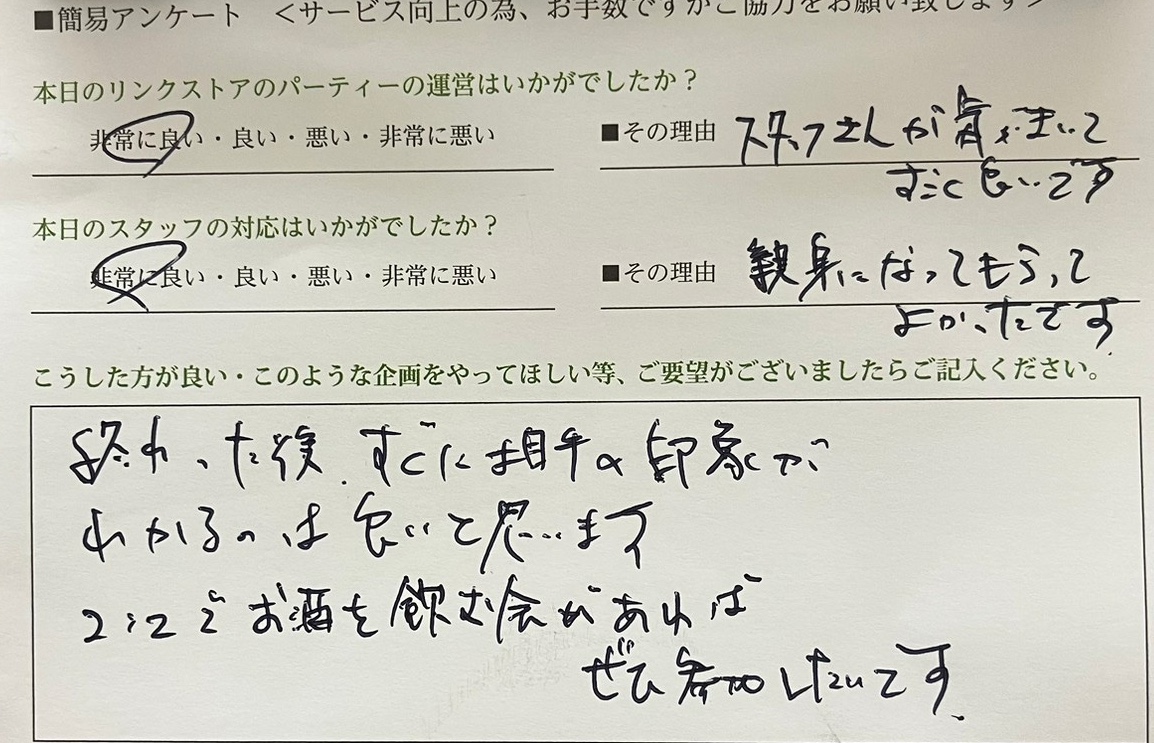 ■簡易アンケート <サービス向上の為、お手数ですがご協力をお願い致します>
本日のリンクストアのパーティーの運営はいかがでしたか？
非常に良い・良い・悪い・非常に悪い
■その理由 スタッフさんが皆々きいて
すごく良いです
本日のスタッフの対応はいかがでしたか？
非常に良い・良い・悪い・非常に悪い
■その理由 親身になってもらって
よかったです
こうした方が良い・このような企画をやってほしい等、ご要望がございましたらご記入ください。
終わった後、すぐに相手の印象が
わかるのは良いと思います
2:2でお酒を飲む会があれば
ぜひ参加したいです。